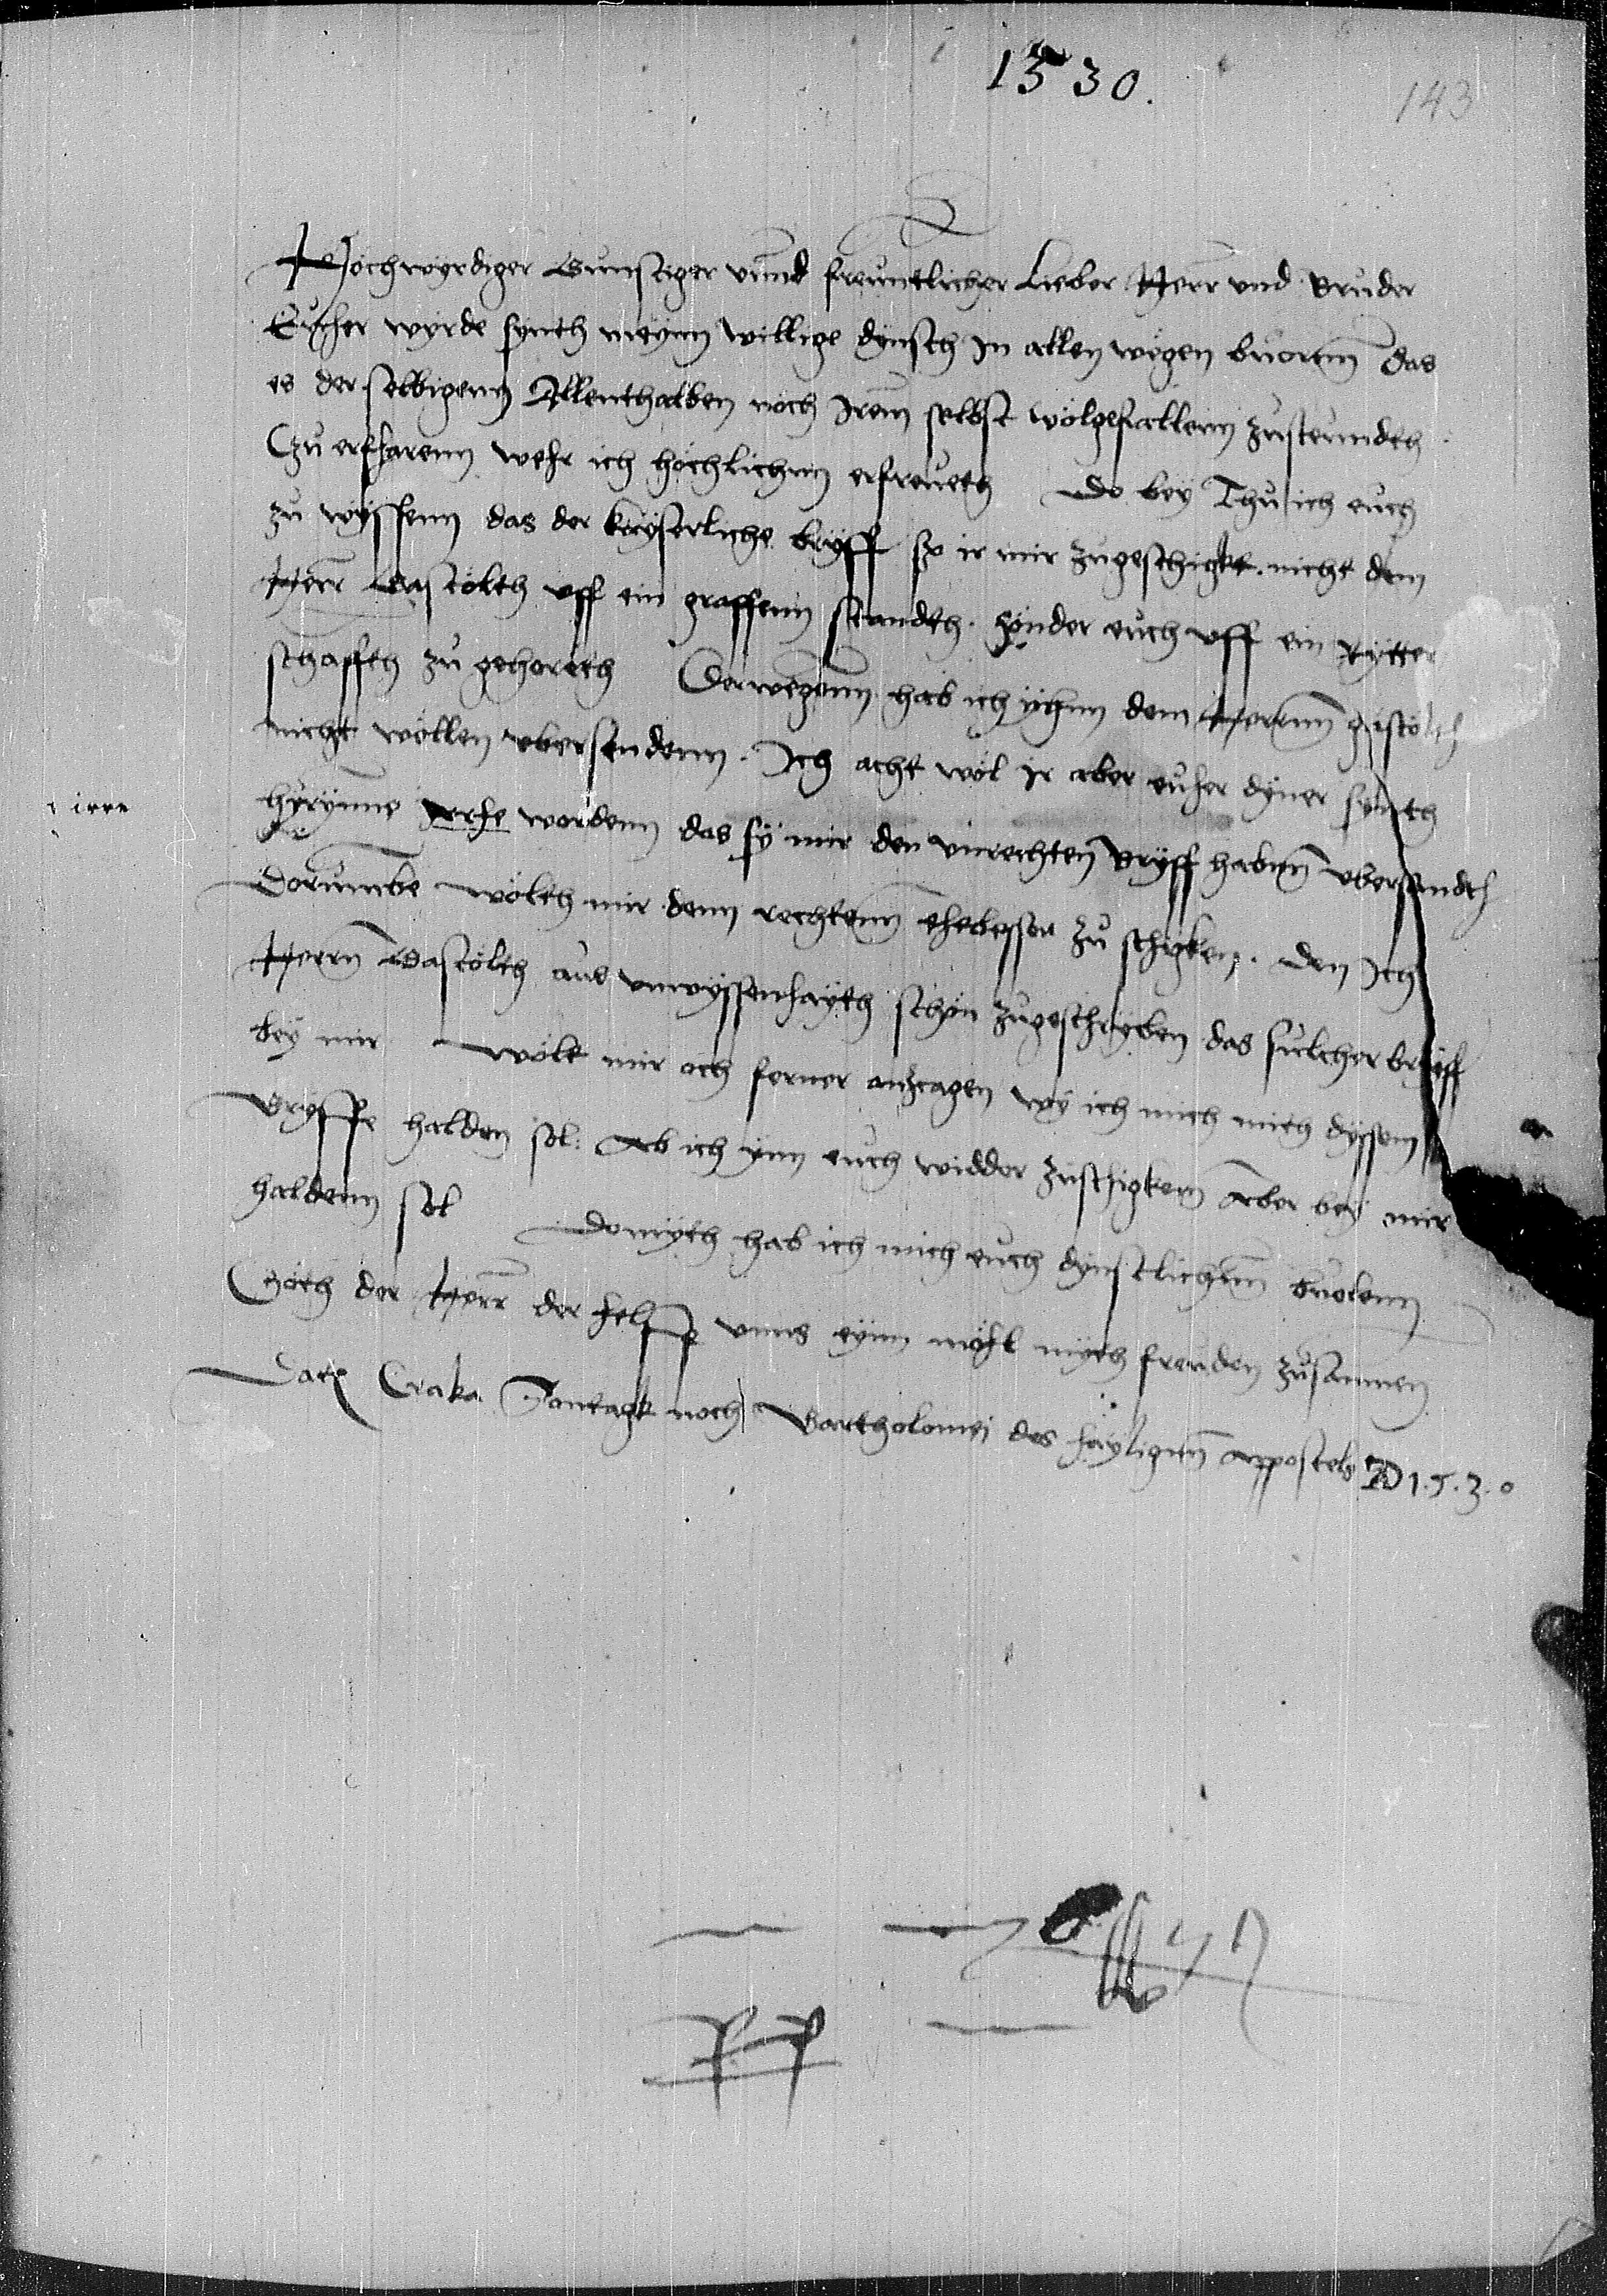 1530.
143
Hochwyrdiger Gunstiger unnd freuntlicher Lieber Herr und Bruder
Eucher wyrde synth meynn willige dynsth In allen wegen bvorenn das
es der selbigenn Allenthalben noch Irem selbst wolgefallenn zusteundth
Czu erfharenn wehr ich hochlichenn erfreueth Do bey Thu ich euch
zu wyssenn das der keyserliche bryff so ir mir zugeschigkt nicht dem
Herr Gastolth uff ein graffenn standth. sonder euch uff ein Rytter
schaffth zu gehoreth Derwegenn hab ich yhnn dem Herrnn gastolth
nicht wollen ubersendenn. Ich acht wol ir aber eucher dyner synth
hyrynne yrhe wordenn das sy mir den unrechten Bryff habenn ubersandth
irre
Dorumbe wolth mir denn rechtenn ehebesser zu schyken. den Ich
Herrn Gastolth aus unwyssenhayth schon zugeschryben das sulcher bryff
bey mir wolt mir och ferner anzcagen wy ich mich mith dyssem
Bryffe halden sol: Ab ich ynn euch widder zuschigkenn Aber bey mir
haldenn sol Domyth hab ich mich euch dynstlichenn bvolenn
Goth der Herr der helffe unns eynn mohl myth freuden zusammen
Dat Craka Sontagk noch Bartholomei des hayligenn appostels AD 1.5.3.0